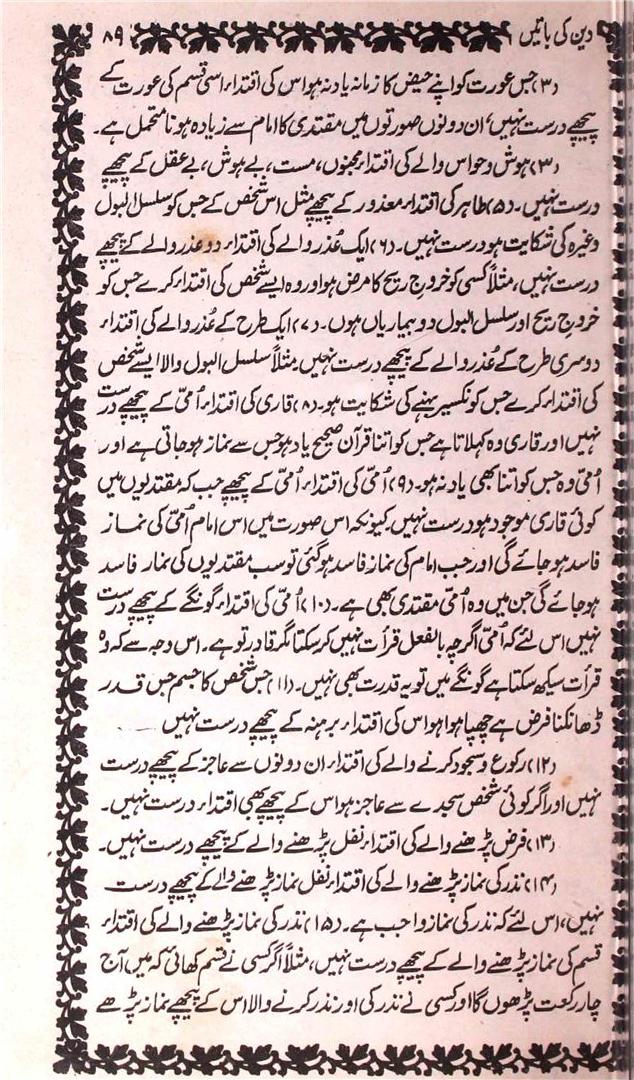 دین کی باتیں ۸۹
(۳) جس عورت کو اپنے حیض کا زمانہ یاد نہ ہو اس کی اقتداء اسی قسم کی عورت کے
پیچھے درست نہیں، ان دونوں صورتوں میں مقتدی کا امام سے زیادہ ہونا محتمل ہے۔
(۴) ہوش و حواس والے کی اقتداء مجنوں، مست، بے ہوش، بے عقل کے پیچھے
درست نہیں۔ (۵) طاہر کی اقتداء معذور کے پیچھے مثل اس شخص کے جس کو سلسل البول
وغیرہ کی شکایت ہو درست نہیں۔ (۶) ایک عُذر والے کی اقتداء دو عذر والے کے پیچھے
درست نہیں، مثلاً کسی کو خروج ریح کا مرض ہو اور وہ ایسے شخص کی اقتداء کرے جس کو
خروجِ ریح اور سلسل البول دو بیماریاں ہوں۔ (۷) ایک طرح کے عُذر والے کی اقتداء
دوسری طرح کے عُذر والے کے پیچھے درست نہیں مثلاً سلسل البول والا ایسے شخص
کی اقتداء کرے جس کو نکسیر بہنے کی شکایت ہو۔ (۸) قاری کی اقتداء اُمّی کے پیچھے درست
نہیں اور قاری وہ کہلاتا ہے جس کو اتنا قرآن صحیح یاد ہو جس سے نماز ہو جاتی ہے اور
اُمّی وہ جس کو اتنا بھی یاد نہ ہو۔ (۹) اُمّی کی اقتداء اُمّی کے پیچھے جب کہ مقتدیوں میں
کوئی قاری موجود ہو درست نہیں کیونکہ اس صورت میں اس امام اُمّی کی نماز
فاسد ہو جائے گی اور جب امام کی نماز فاسد ہو گئی تو سب مقتدیوں کی نماز فاسد
ہو جائے گی جن میں وہ اُمّی مقتدی بھی ہے۔ (۱۰) اُمّی کی اقتداء گونگے کے پیچھے درست
نہیں اس لئے کہ اُمّی اگرچہ بالفعل قرأت نہیں کر سکتا مگر قادر تو ہے۔ اس وجہ سے کہ وہ
قرأت سیکھ سکتا ہے گونگے میں تو یہ قدرت بھی نہیں۔ (۱۱) جس شخص کا جسم جس قدر
ڈھانکنا فرض ہے چھپا ہوا ہو اس کی اقتداء برہنہ کے پیچھے درست نہیں
(۱۲) رکوع و سجود کرنے والے کی اقتداء ان دونوں سے عاجز کے پیچھے درست
نہیں اور اگر کوئی شخص سجدے سے عاجز ہو اس کے پیچھے بھی اقتداء درست نہیں۔
(۱۳) فرض پڑھنے والے کی اقتداء نفل پڑھنے والے کے پیچھے درست نہیں۔
(۱۴) نذر کی نماز پڑھنے والے کی اقتداء نفل نماز پڑھنے والے کے پیچھے درست
نہیں، اس لئے کہ نذر کی نماز واجب ہے۔ (۱۵) نذر کی نماز پڑھنے والے کی اقتداء
قسم کی نماز پڑھنے والے کے پیچھے درست نہیں، مثلاً اگر کسی نے قسم کھائی کہ میں آج
چار رکعت پڑھوں گا اور کسی نے نذر کی اور نذر کرنے والا اس کے پیچھے نماز پڑھے